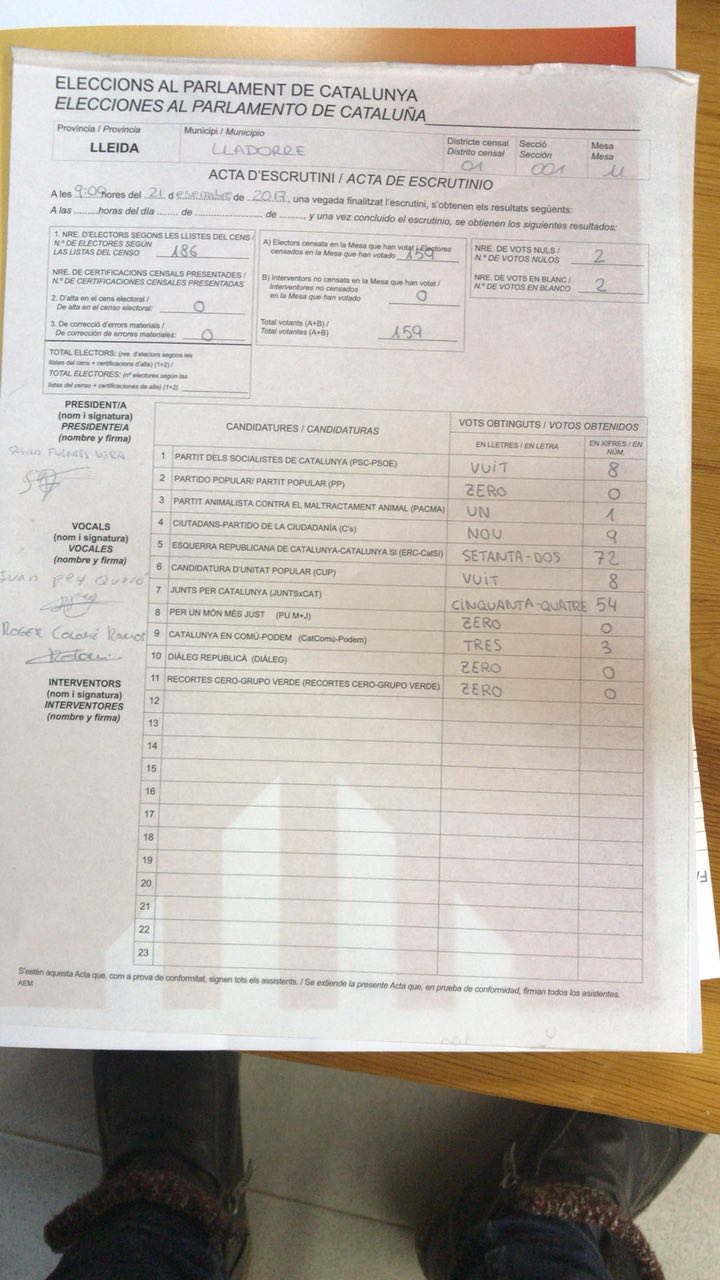 ELECCIONS AL PARLAMENT DE CATALUNYA
ELECCIONES AL PARLAMENTO DE CATALUÑA
Província / Provincia
LLEIDA
Municipi / Municipio
LLADORRE
Districte censal
Distrito censal
01
Secció
Sección
001
Mesa
Mesa
U
ACTA D'ESCRUTINI / ACTA DE ESCRUTINIO
A les 9:00 hores del 21 d esembre de 2017, una vegada finalitzat l'escrutini, s'obtenen els resultats següents:
A las ......... horas del día ....... de .................... de ........, y una vez concluido el escrutinio, se obtienen los siguientes resultados:
1. NRE. D'ELECTORS SEGONS LES LLISTES DEL CENS /
N.º DE ELECTORES SEGÚN
LAS LISTAS DEL CENSO 186
NRE. DE CERTIFICACIONS CENSALS PRESENTADES /
N.º DE CERTIFICACIONES CENSALES PRESENTADAS
2. D'alta en el cens electoral /
De alta en el censo electoral: 0
3. De correcció d'errors materials /
De corrección de errores materiales: 0
TOTAL ELECTORS: (nre. d'electors segons les
llistes del cens + certificacions d'alta) (1+2) /
TOTAL ELECTORES: (nº electores según las
listas del censo + certificaciones de alta) (1+2)
A) Electors censats en la Mesa que han votat / Electores
censados en la Mesa que han votado 159
B) Interventors no censats en la Mesa que han votat /
Interventores no censados
en la Mesa que han votado 0
Total votants (A+B) /
Total votantes (A+B) 159
NRE. DE VOTS NULS /
N.º DE VOTOS NULOS 2
NRE. DE VOTS EN BLANC /
N.º DE VOTOS EN BLANCO 2
PRESIDENT/A
(nom i signatura)
PRESIDENTE/A
(nombre y firma)
VOCALS
(nom i signatura)
VOCALES
(nombre y firma)
Ivan Pey
ROGER Ramos
INTERVENTORS
(nom i signatura)
INTERVENTORES
(nombre y firma)
CANDIDATURES / CANDIDATURAS
VOTS OBTINGUTS / VOTOS OBTENIDOS
EN LLETRES / EN LETRA
EN XIFRES / EN NÚM.
1 PARTIT DELS SOCIALISTES DE CATALUNYA (PSC-PSOE) VUIT 8
2 PARTIDO POPULAR/ PARTIT POPULAR (PP) ZERO 0
3 PARTIT ANIMALISTA CONTRA EL MALTRACTAMENT ANIMAL (PACMA) UN 1
4 CIUTADANS-PARTIDO DE LA CIUDADANÍA (C's) NOU 9
5 ESQUERRA REPUBLICANA DE CATALUNYA-CATALUNYA SI (ERC-CatSí) SETANTA-DOS 72
6 CANDIDATURA D'UNITAT POPULAR (CUP) VUIT 8
7 JUNTS PER CATALUNYA (JUNTSxCAT) CINQUANTA-QUATRE 54
8 PER UN MÓN MÉS JUST (PU M+J) ZERO 0
9 CATALUNYA EN COMÚ-PODEM (CatComú-Podem) TRES 3
10 DIÀLEG REPUBLICÀ (DIÀLEG) ZERO 0
11 RECORTES CERO-GRUPO VERDE (RECORTES CERO-GRUPO VERDE) ZERO 0
12
13
14
15
16
17
18
19
20
21
22
23
S'estén aquesta Acta que, com a prova de conformitat, signen tots els assistents. / Se extiende la presente Acta que, en prueba de conformidad, firman todos los asistentes.
AEM